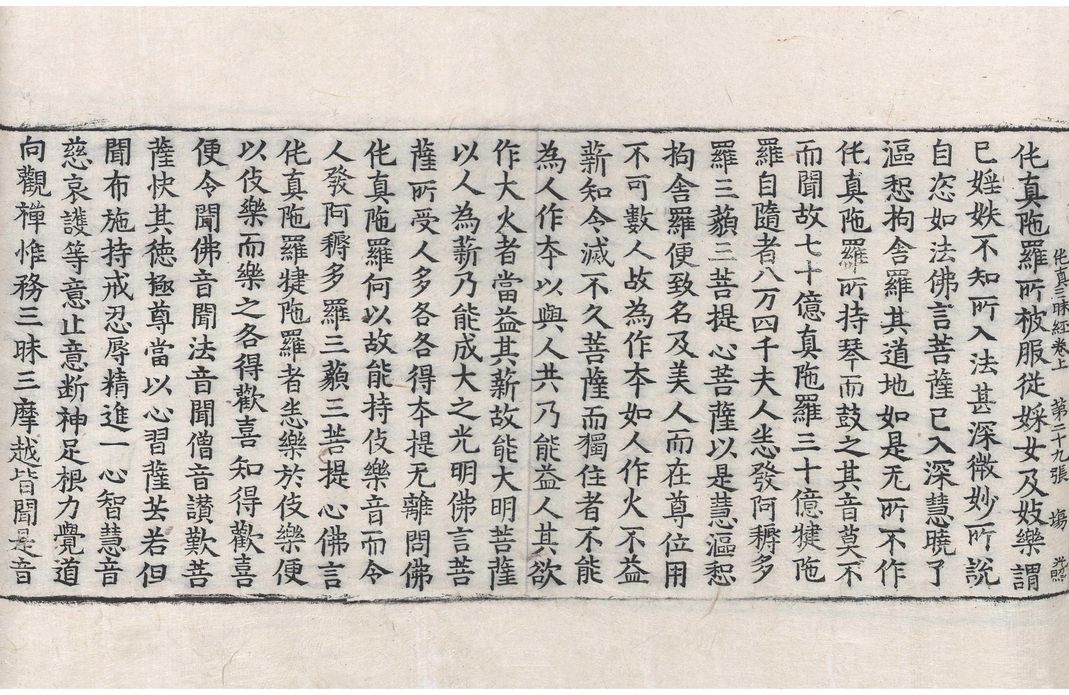 仛真三昧経卷上　第二十九張　場　光照
仛真陁羅所被服從婇女及妓樂謂
已婬妷不知所入法甚深微妙所説
自恣如法佛言菩薩已入深慧曉了
漚惒拘舍羅其道地如是无所不作
仛真陁羅所持琴而鼓之其音莫不
而聞故七十億真陁羅三十億揵陁
羅自隨者八万四千夫人㤙發阿耨多
羅三藐三菩提心菩薩以是慧漚惒
拘舍羅便致名及美人而在尊位用
不可數人故為作夲如人作火不益
薪知令滅不久菩薩而獨住者不能
為人作夲以與人共乃能益人其欲
作大火者當益其薪故能大明菩薩
以人為薪乃能成大之光明佛言菩
薩所受人多各各得夲提无離問佛
仛真陁羅何以故能持伎樂音而令
人發阿耨多羅三藐三菩提心佛言
仛真陁羅揵陁羅者㤙樂於伎樂便
以伎樂而樂之各得歡喜知得歡喜
便令聞佛音聞法音聞僧音讃歎菩
薩快其德極尊當以心習薩芸若但
聞布施持戒忍辱精進一心智慧音
慈哀護等意止意断神足根力覺道
向觀禪惟務三昧三摩越皆聞是音